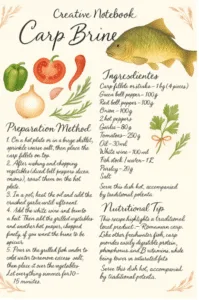 Creative Notebook
Carp Brine
Ingredientes
Carp fillets or steaks - 1 kg (4 pieces)
Green bell pepper - 100g
Red bell pepper - 100g
Onion - 100g
2 hot peppers
Garlic - 80g
Tomatoes - 250g
Oil - 30ml
White wine - 100 ml
Fish stock / water - 1 L
Parsley - 20g
Salt
Serve this dish hot, accompanied
by traditional polenta.
Preparation Method
1. On a hot plate or in a large skillet,
sprinkle coarse salt, then place the
carp fillets on top.
2. After washing and chopping
vegetables (diced bell peppers, diced
onions), roast them on the hot
plate.
3. In a pot, heat the oil and add the
crushed garlic until
4. Add the white wine and bring to
a boil. Then add the grilled vegetables
and another hot pepper, chopped
finely, if you want the brine to be
spicier.
5. Place the grilled fish under
cold water to remove excess salt,
then place it over the vegetables.
Let everything simmer for 10-
15 minutes.
Nutritional Tip
This recipe highlights a traditional
local product - Romanian carp.
Like other freshwater fish, carp
provides easily digestible protein,
phosphorus, and B vitamins, while
being lower in saturated fats
Serve this dish hot, accompanied
by traditional polenta.